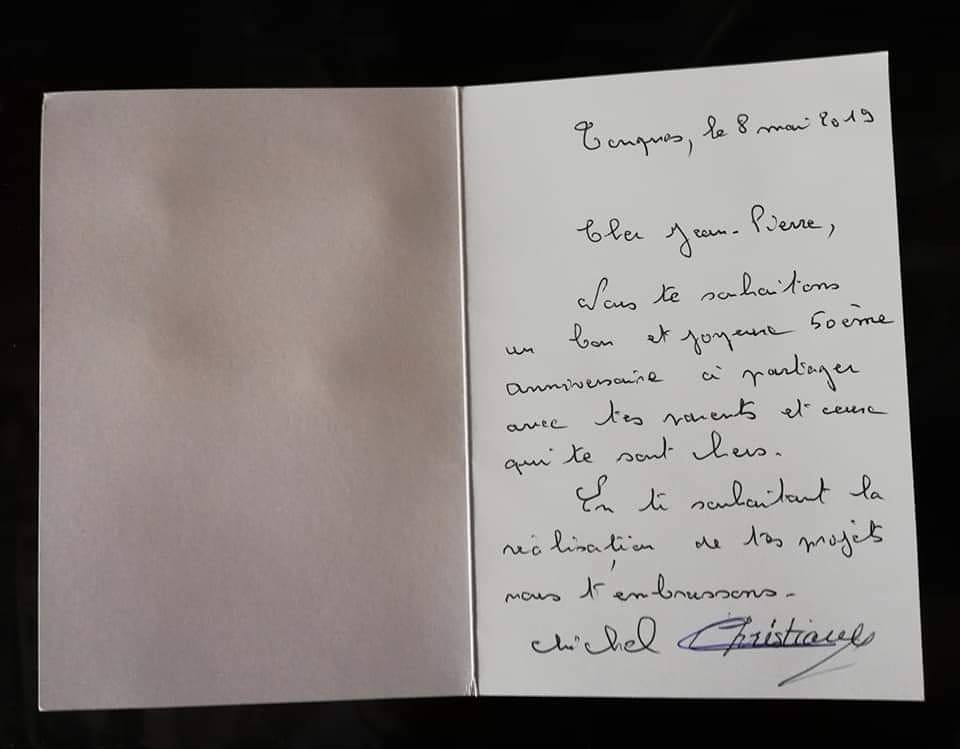 Tanques, le 8 mai 2019
Cher Jean-Pierre,
Nous te souhaitons
un bon et joyeux 50ème
anniversaire à partager
avec tes parents et ceux
qui te sont chers.
En te souhaitant la
réalisation de tes projets
nous t'embrassons.
Michel Christiane